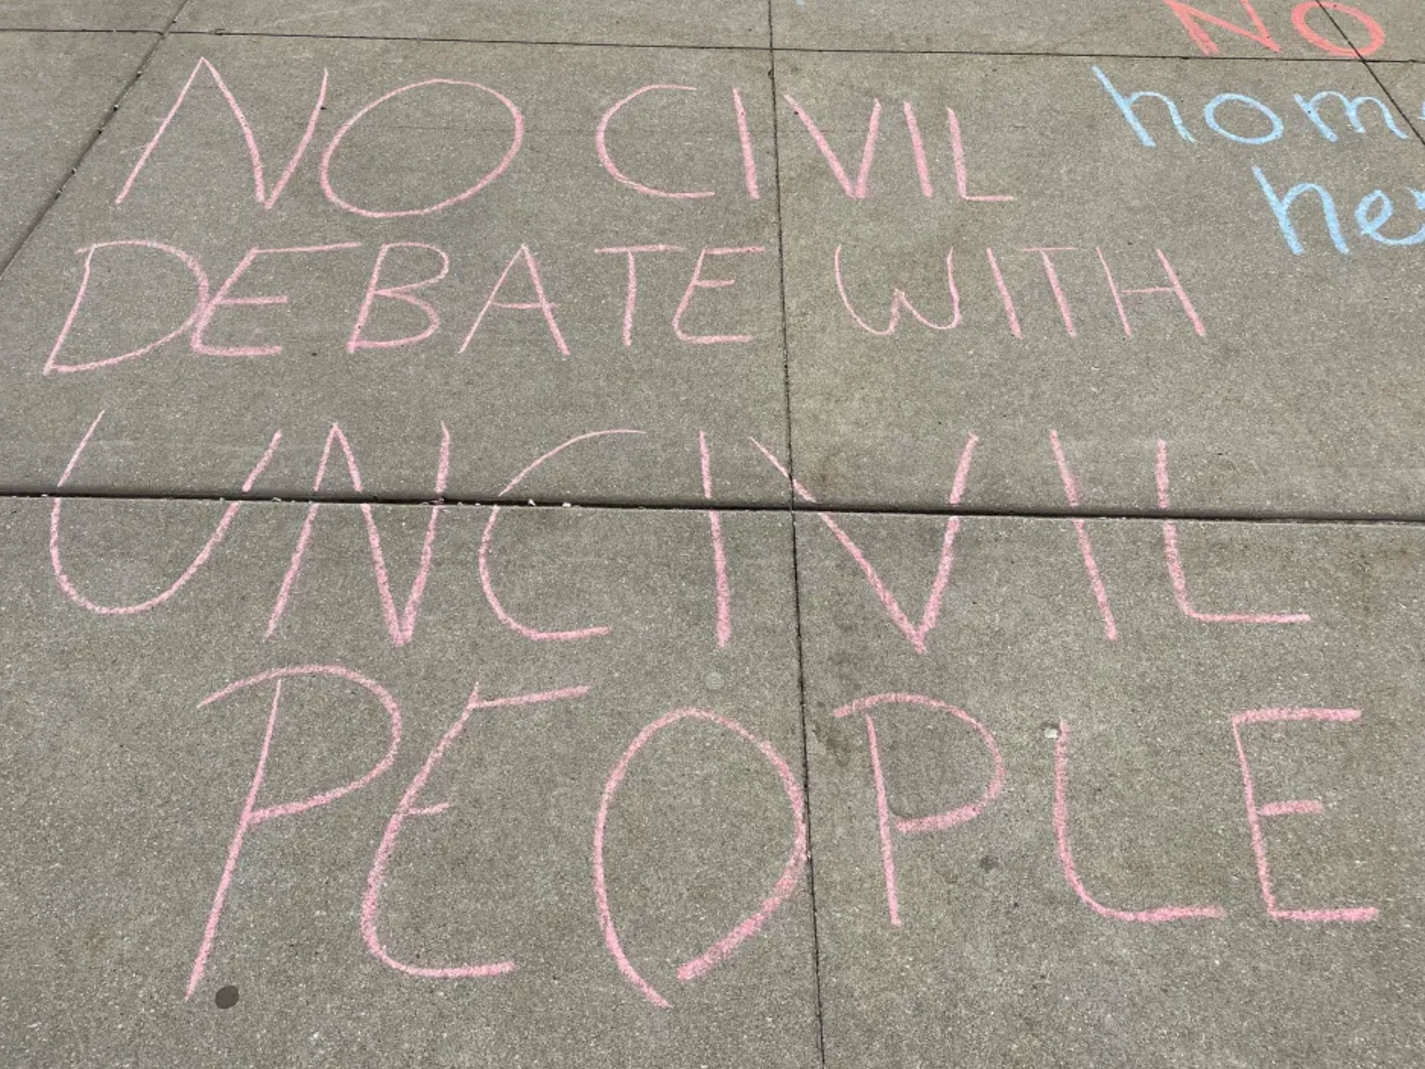 NO
NO CIVIL
DEBATE WITH
UNCIVIL
PEOPLE
hom
he